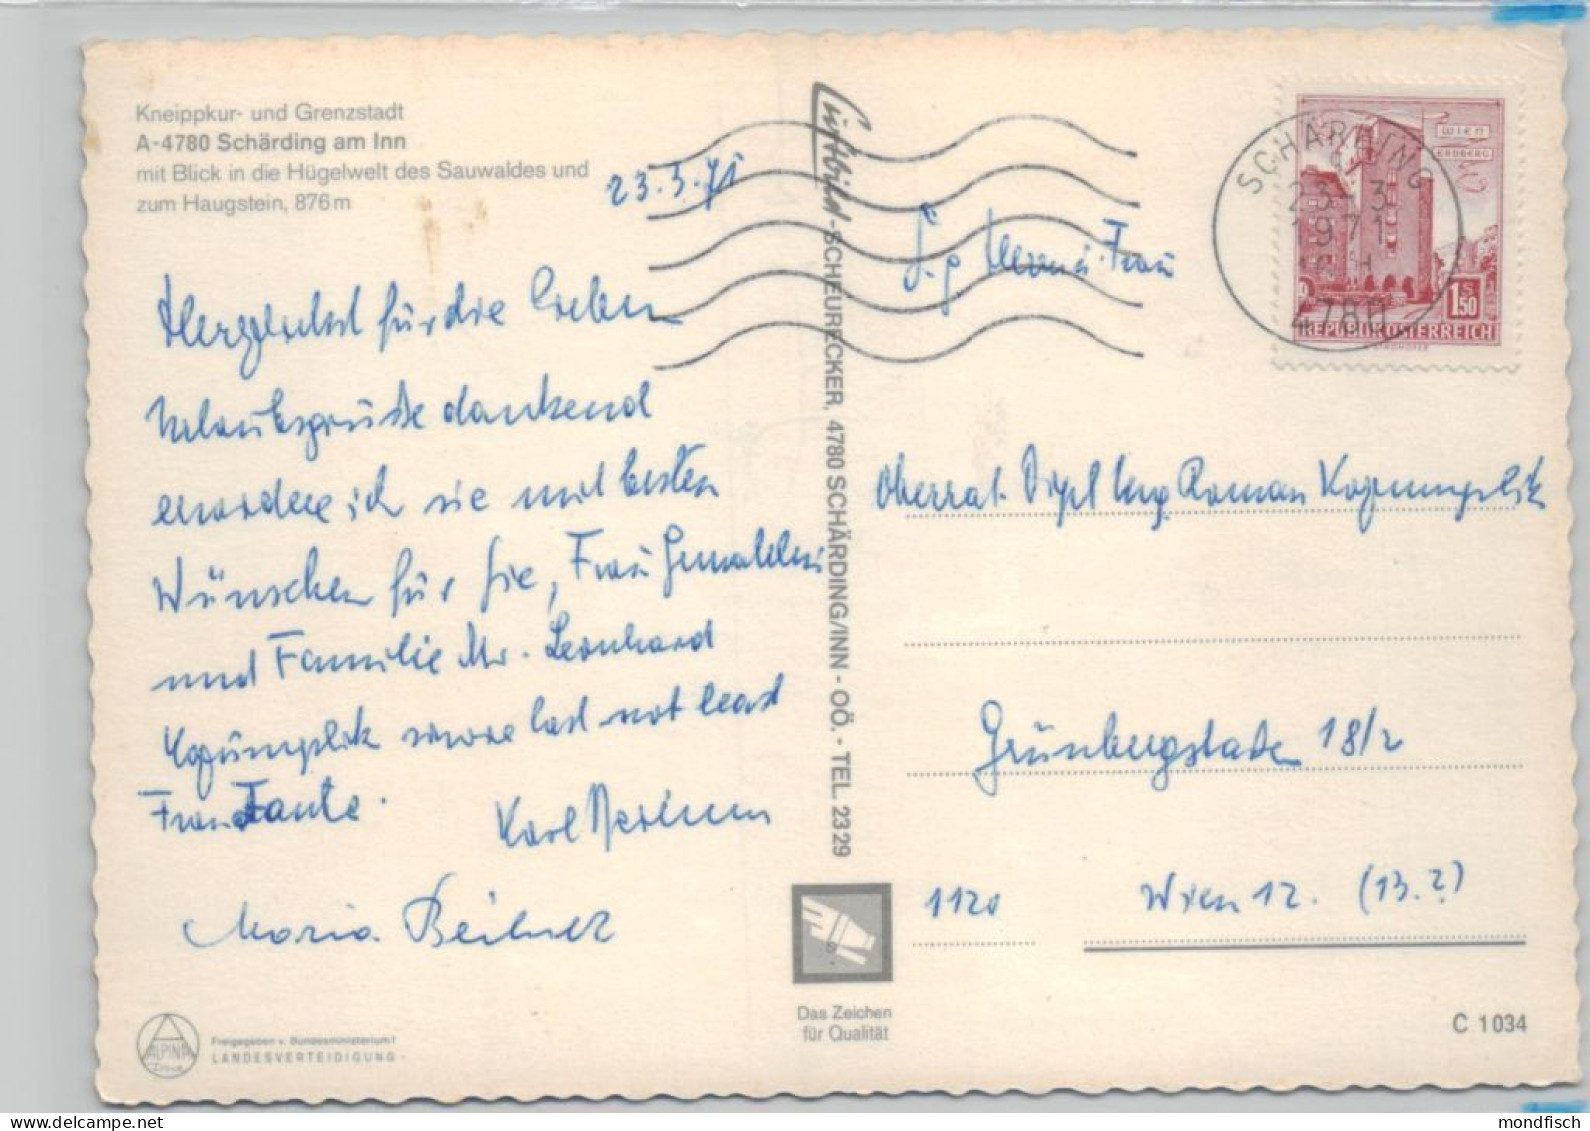 Kneippkur- und Grenzstadt
A-4780 Schärding am Inn
mit Blick in die Hügelwelt des Sauwaldes und
zum Haugstein, 876m
23.3.71
für die lieben
Urlaubsgrüße dankend
ich sie mit besten
Wünschen für Sie, Frau Gemahlin
und Familie Mr. Leonhard
sowie last not least
Frau Tante.
Karl
Maria
ALPINA
Freigegeben v. Bundesministerium f
LANDESVERTEIDIGUNG -
Luftbild-SCHEURECKER, 4780 SCHÄRDING/INN - OÖ. - TEL. 2329
Das Zeichen
für Qualität
SCHÄRDING
23.-3
1971
4780
WIEN
ERDBERG
S
1.50
REPUBLIK ÖSTERREICH
Herrn u. Frau
Oberrat. Dipl Ing. Roman
Grünbergstraße 18/2
1120 Wien 12. (13.?)
C 1034
mondfisch